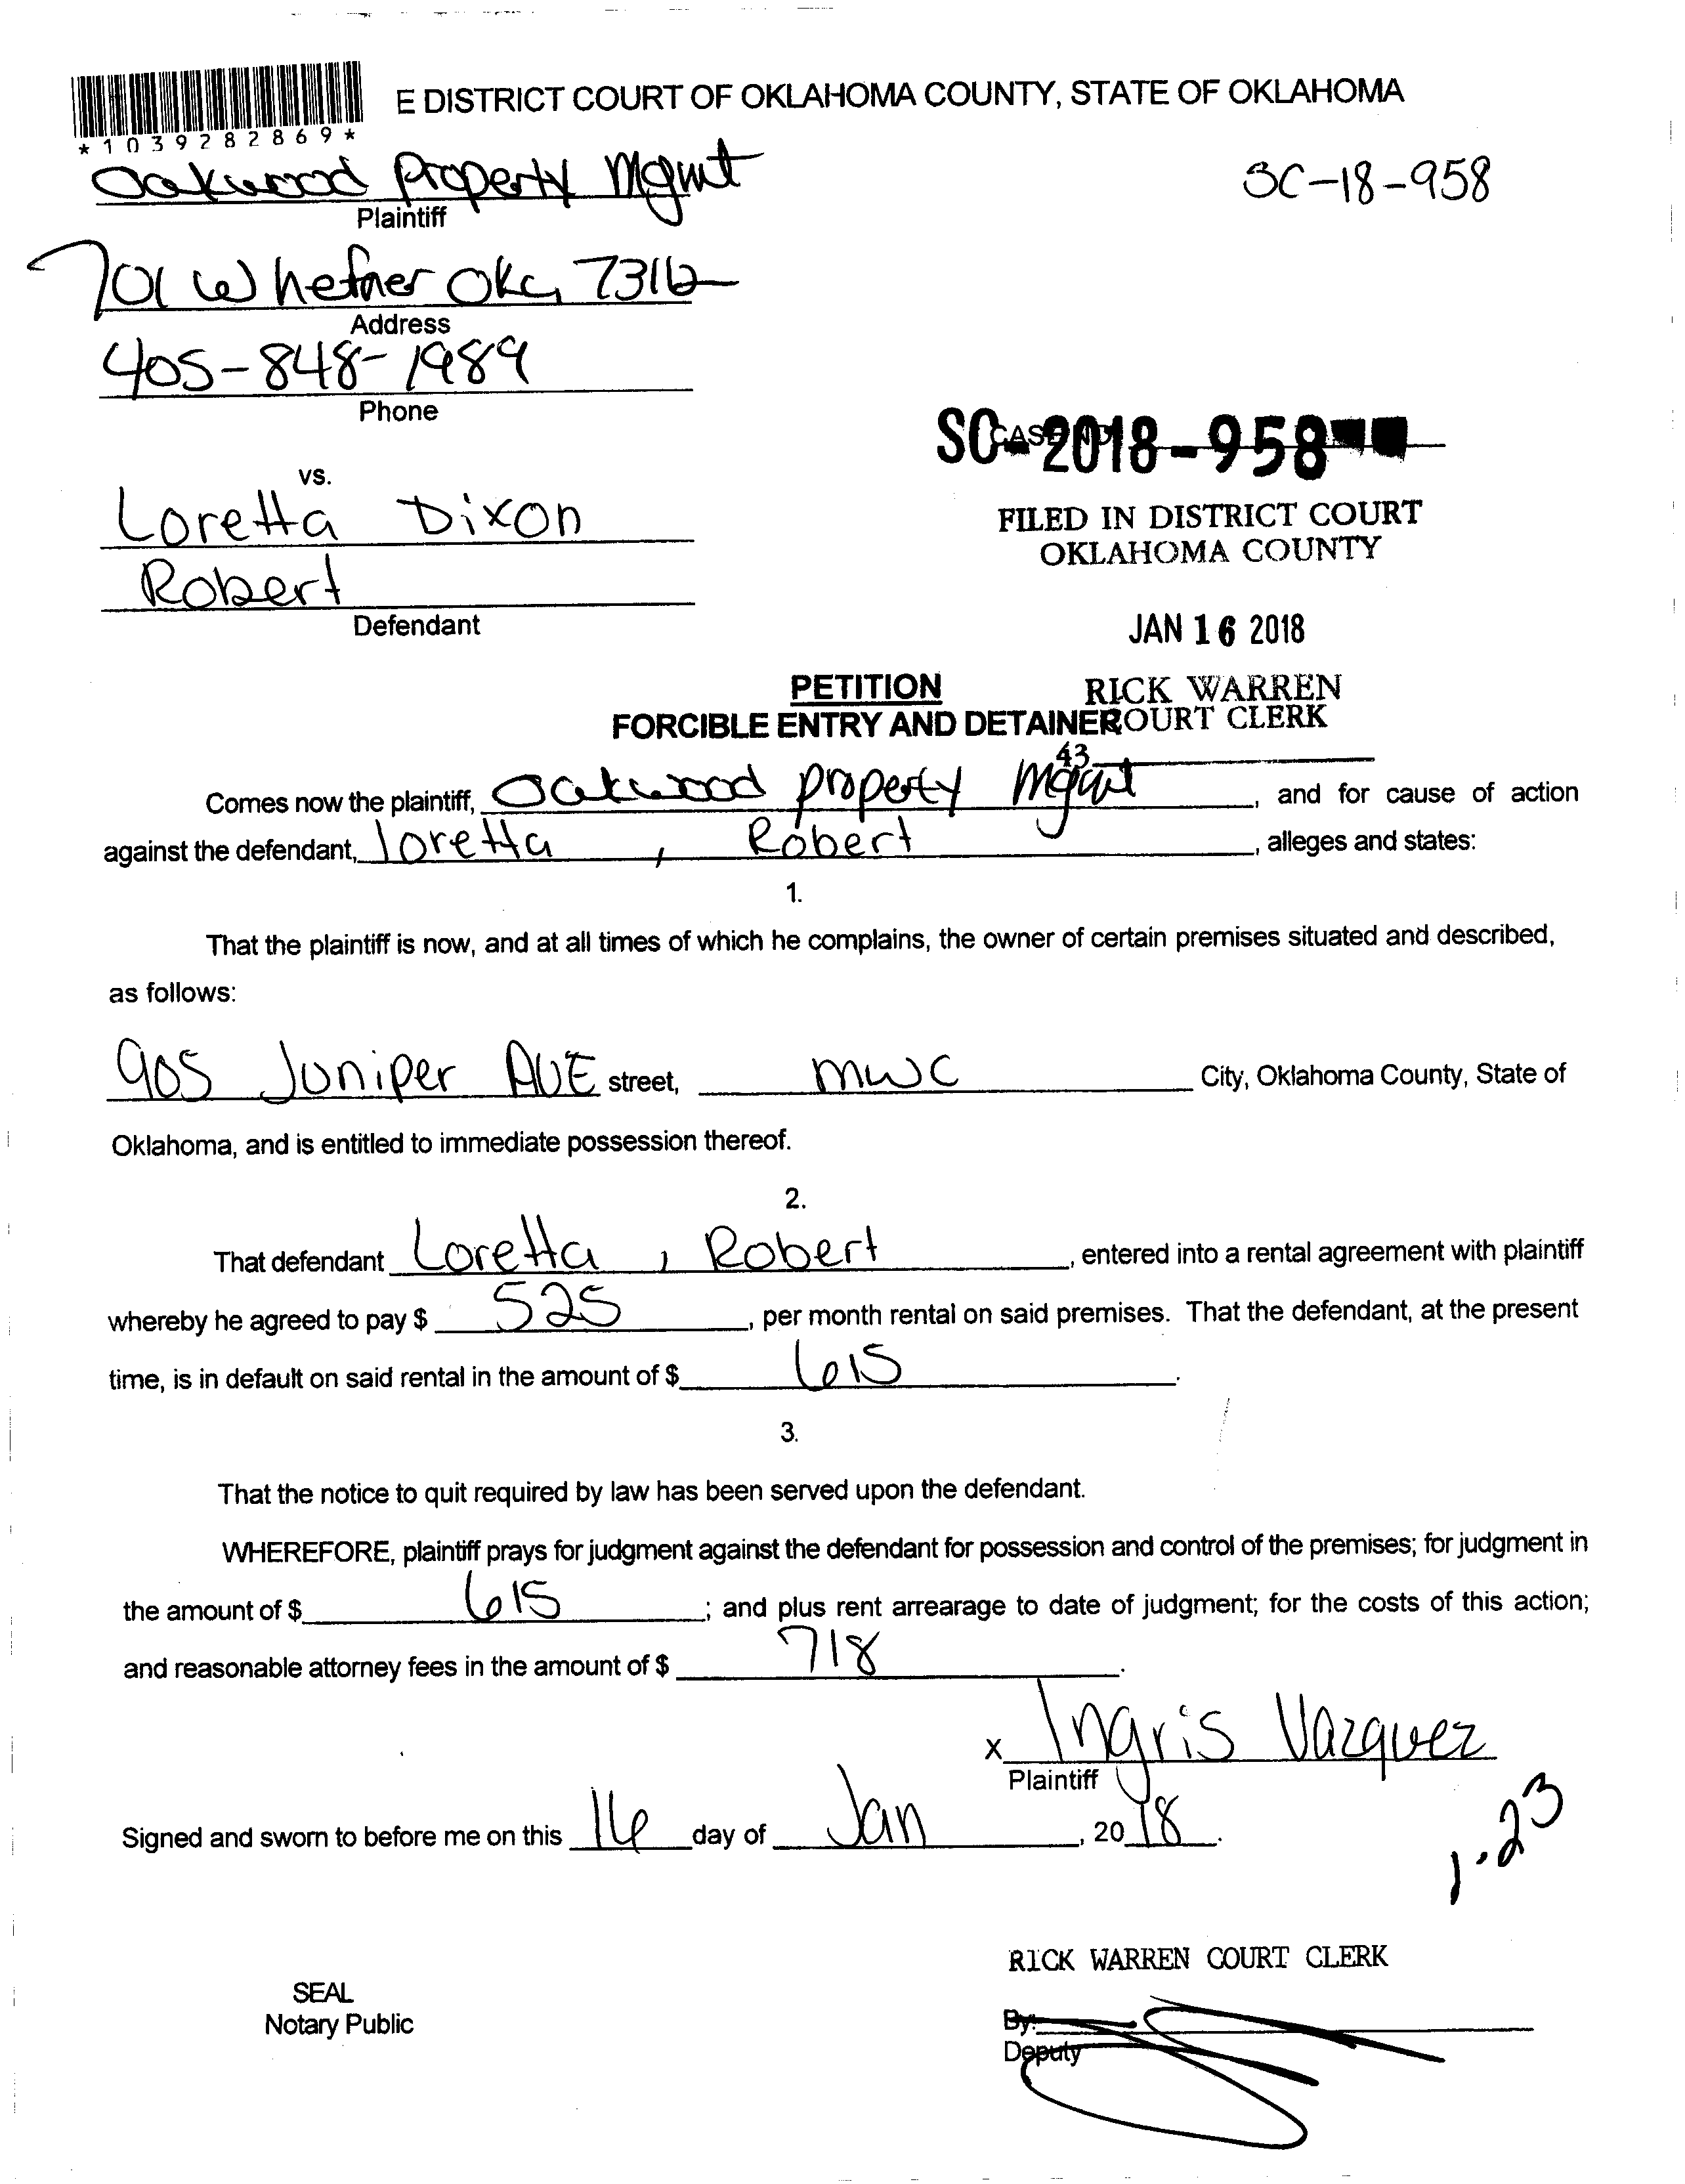 E DISTRICT COURT OF OKLAHOMA COUNTY, STATE OF OKLAHOMA
*1039282869*
Oakwood Property Mgmt
Plaintiff
SC-18-958
701 W hefner Okc, 73112
Address
405-848-1989
Phone
SC-2018-958
CASE NO
vs.
Loretta Dixon
Robert
Defendant
FILED IN DISTRICT COURT
OKLAHOMA COUNTY
JAN 16 2018
RICK WARREN
COURT CLERK
43
PETITION
FORCIBLE ENTRY AND DETAINER
Comes now the plaintiff, Oakwood property Mgmt, and for cause of action
against the defendant, loretta, Robert, alleges and states:
1.
That the plaintiff is now, and at all times of which he complains, the owner of certain premises situated and described,
as follows:
905 Juniper AVE street, MWC City, Oklahoma County, State of
Oklahoma, and is entitled to immediate possession thereof.
2.
That defendant Loretta, Robert, entered into a rental agreement with plaintiff
whereby he agreed to pay $ 525, per month rental on said premises. That the defendant, at the present
time, is in default on said rental in the amount of $ 615.
3.
That the notice to quit required by law has been served upon the defendant.
WHEREFORE, plaintiff prays for judgment against the defendant for possession and control of the premises; for judgment in
the amount of $ 615; and plus rent arrearage to date of judgment; for the costs of this action;
and reasonable attorney fees in the amount of $ 718.
x Ingris Vazquez
Plaintiff
Signed and sworn to before me on this 16 day of Jan, 2018.
1.23
RICK WARREN COURT CLERK
SEAL
Notary Public
By:
Deputy